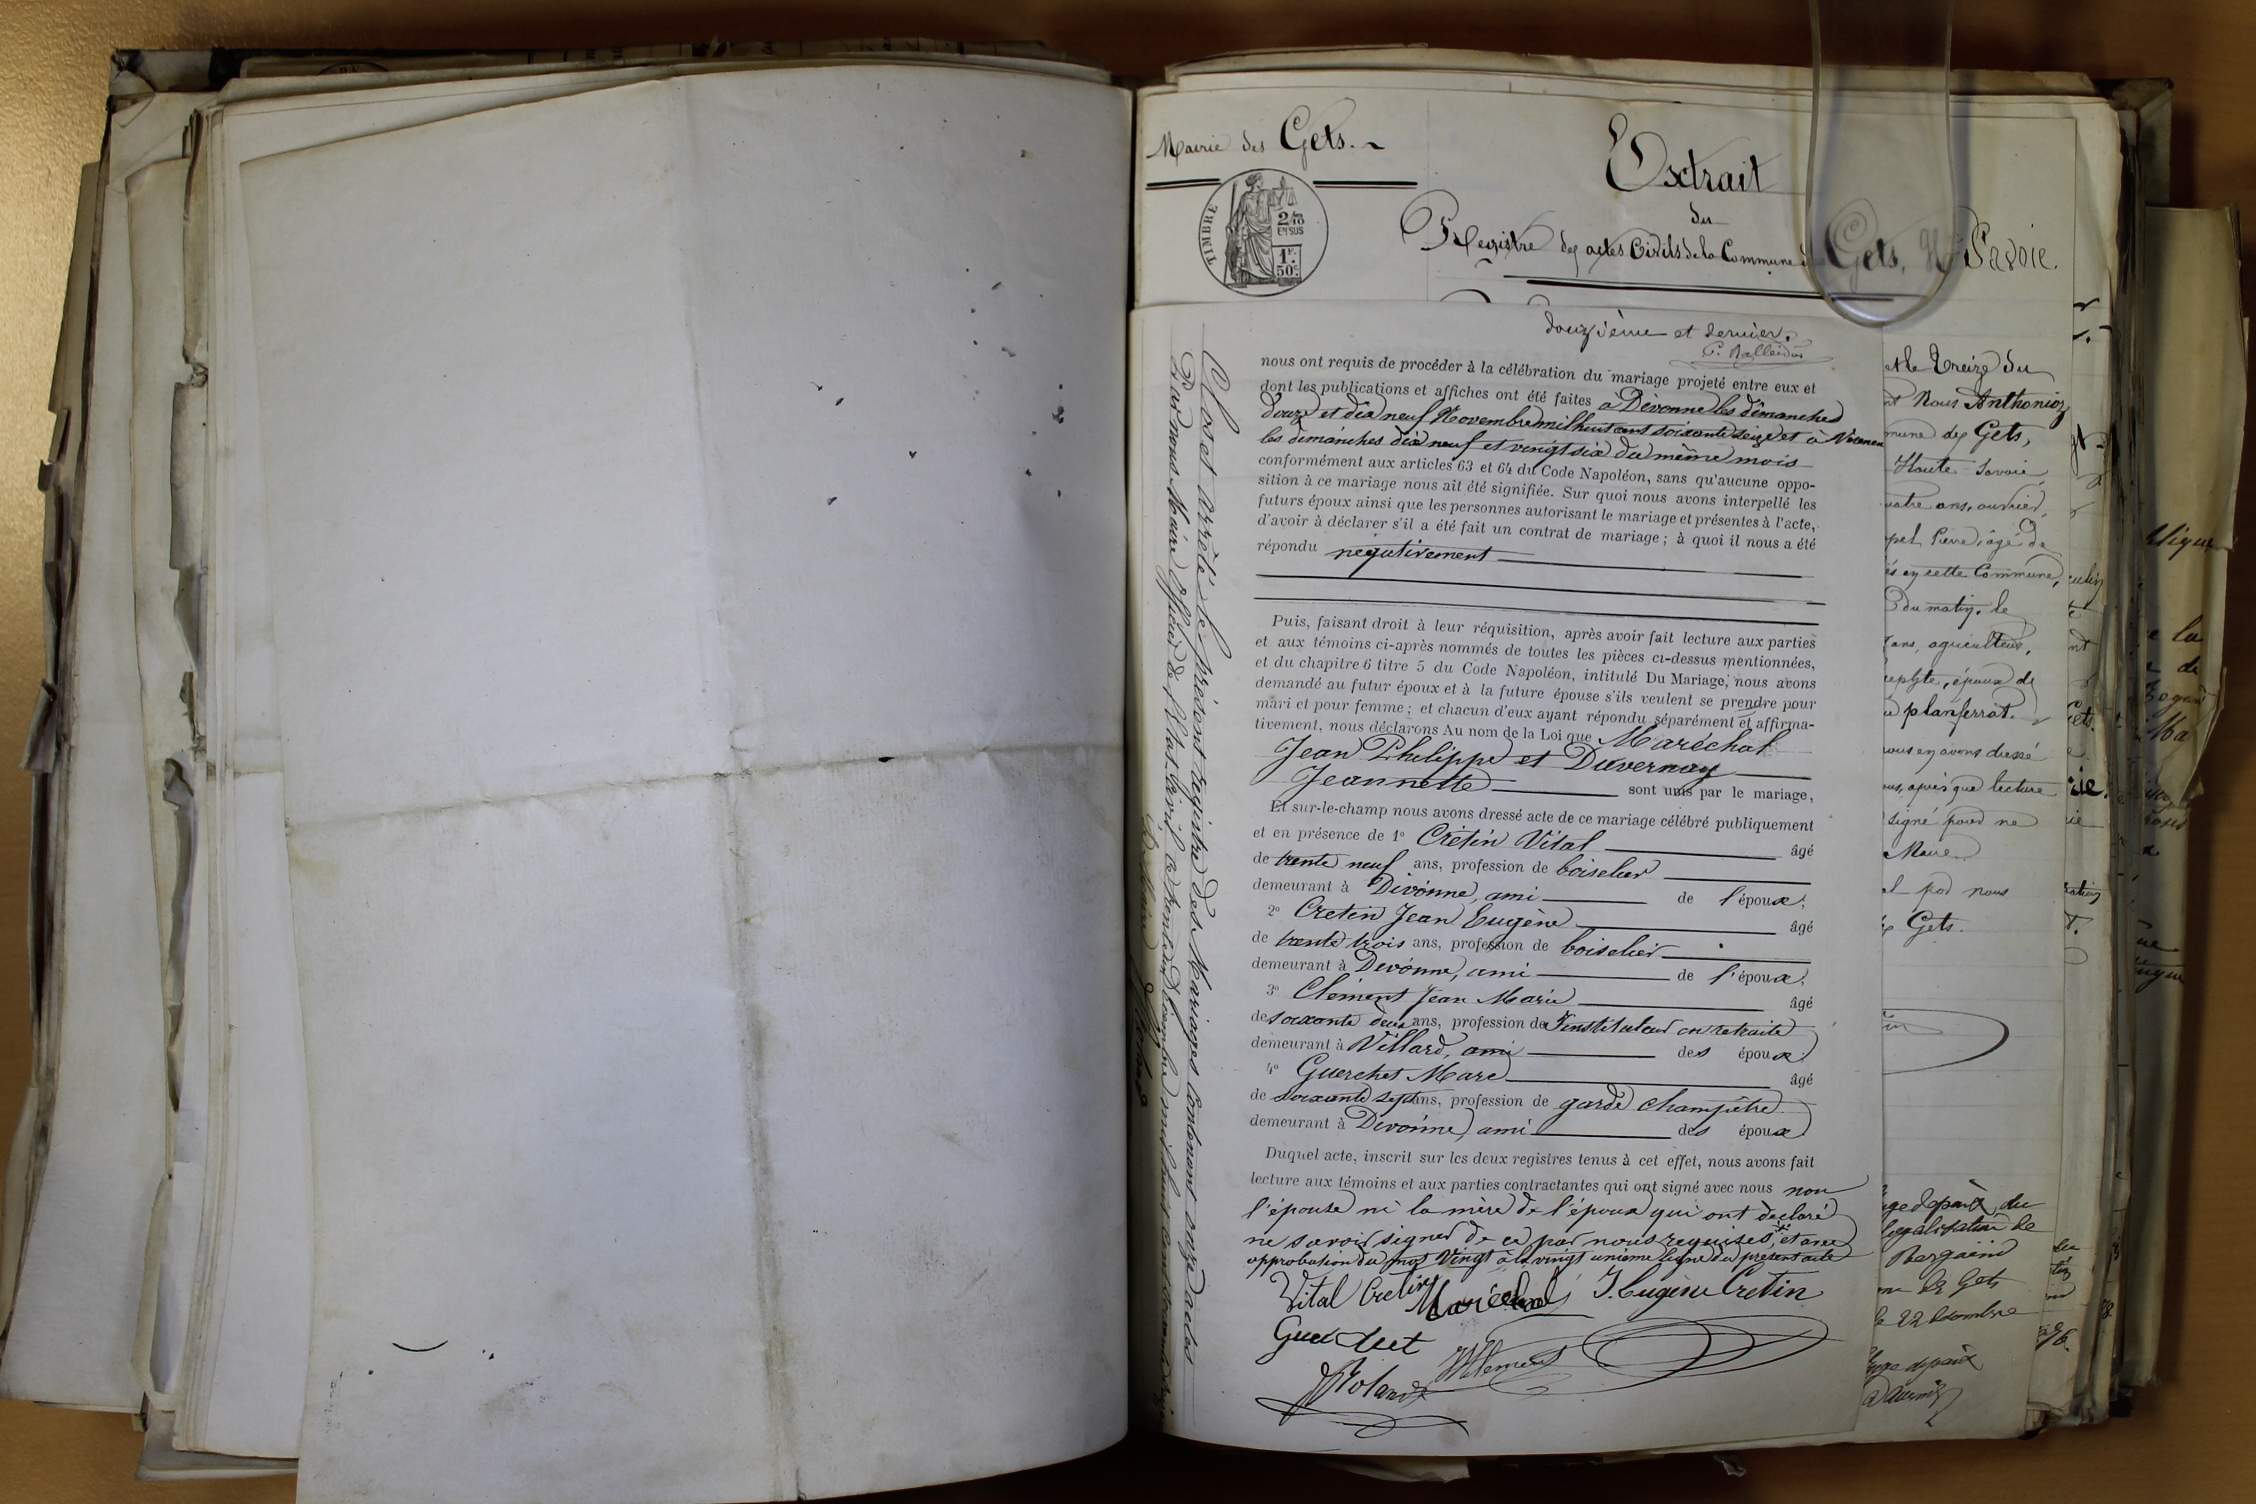 Mairie des Gets.
Extrait
du
Registre des actes Civils de la Commune d Gets, Hte Savoie.
TIMBRE
2/10
EN SUS
1F.
50C.
douzième et dernier.
nous ont requis de procéder à la célébration du mariage projeté entre eux et
dont les publications et affiches ont été faites à Divonne les dimanches
douze et dix neuf Novembre mil huit cent soixante seize et à
les dimanches dix neuf et vingt six du même mois
conformément aux articles 63 et 64 du Code Napoléon, sans qu'aucune oppo-
sition à ce mariage nous ait été signifiée. Sur quoi nous avons interpellé les
futurs époux ainsi que les personnes autorisant le mariage et présentes à l'acte,
d'avoir à déclarer s'il a été fait un contrat de mariage ; à quoi il nous a été
répondu négativement
Puis, faisant droit à leur réquisition, après avoir fait lecture aux parties
et aux témoins ci-après nommés de toutes les pièces ci-dessus mentionnées,
et du chapitre 6 titre 5 du Code Napoléon, intitulé Du Mariage, nous avons
demandé au futur époux et à la future épouse s'ils veulent se prendre pour
mari et pour femme ; et chacun d'eux ayant répondu séparément et affirma-
tivement, nous déclarons Au nom de la Loi que Maréchal
Jean Philippe et Duvernay
Jeannette sont unis par le mariage,
Et sur-le-champ nous avons dressé acte de ce mariage célébré publiquement
et en présence de 1° Crétin Vital âgé
de trente neuf ans, profession de boiselier
demeurant à Divonne, ami de l'époux,
2° Cretin Jean Eugène âgé
de trente trois ans, profession de boiselier
demeurant à Divonne, ami de l'époux,
3° Clément Jean Marie âgé
de soixante deux ans, profession de instituteur en retraite
demeurant à Villard, ami des époux
4° Guerchet Marc âgé
de soixante sept ans, profession de garde champêtre
demeurant à Divonne, ami des époux
Duquel acte, inscrit sur les deux registres tenus à cet effet, nous avons fait
lecture aux témoins et aux parties contractantes qui ont signé avec nous non
l'épouse ni la mère de l'époux qui ont déclaré
ne savoir signer de ce par nous requises, et avec
approbation du mot Vingt à la vingt unième ligne du présent acte
Vital Cretin Maréchal J. Eugène Cretin
Guerchet
Clos et arrêté le présent registre des Mariages contenant onze actes
Par nous Maire Officier de l'Etat Civil le trente un Décembre mil huit cent soixante seize
Le Maire
et le treize du
Nous Anthonioz
mune des Gets,
Haute-Savoie
uatre ans, ouvrier,
pet Pierre, âgé de
és en cette Commune,
du matin, le
ans, agriculteur,
, époux de
planferrat.
nous en avons dressé
ous, après que lecture
signé pour ne
Maire
al par nous
Gets.
uge de paix du
légalisation de
de Gets
le 22 Décembre
Juge de paix